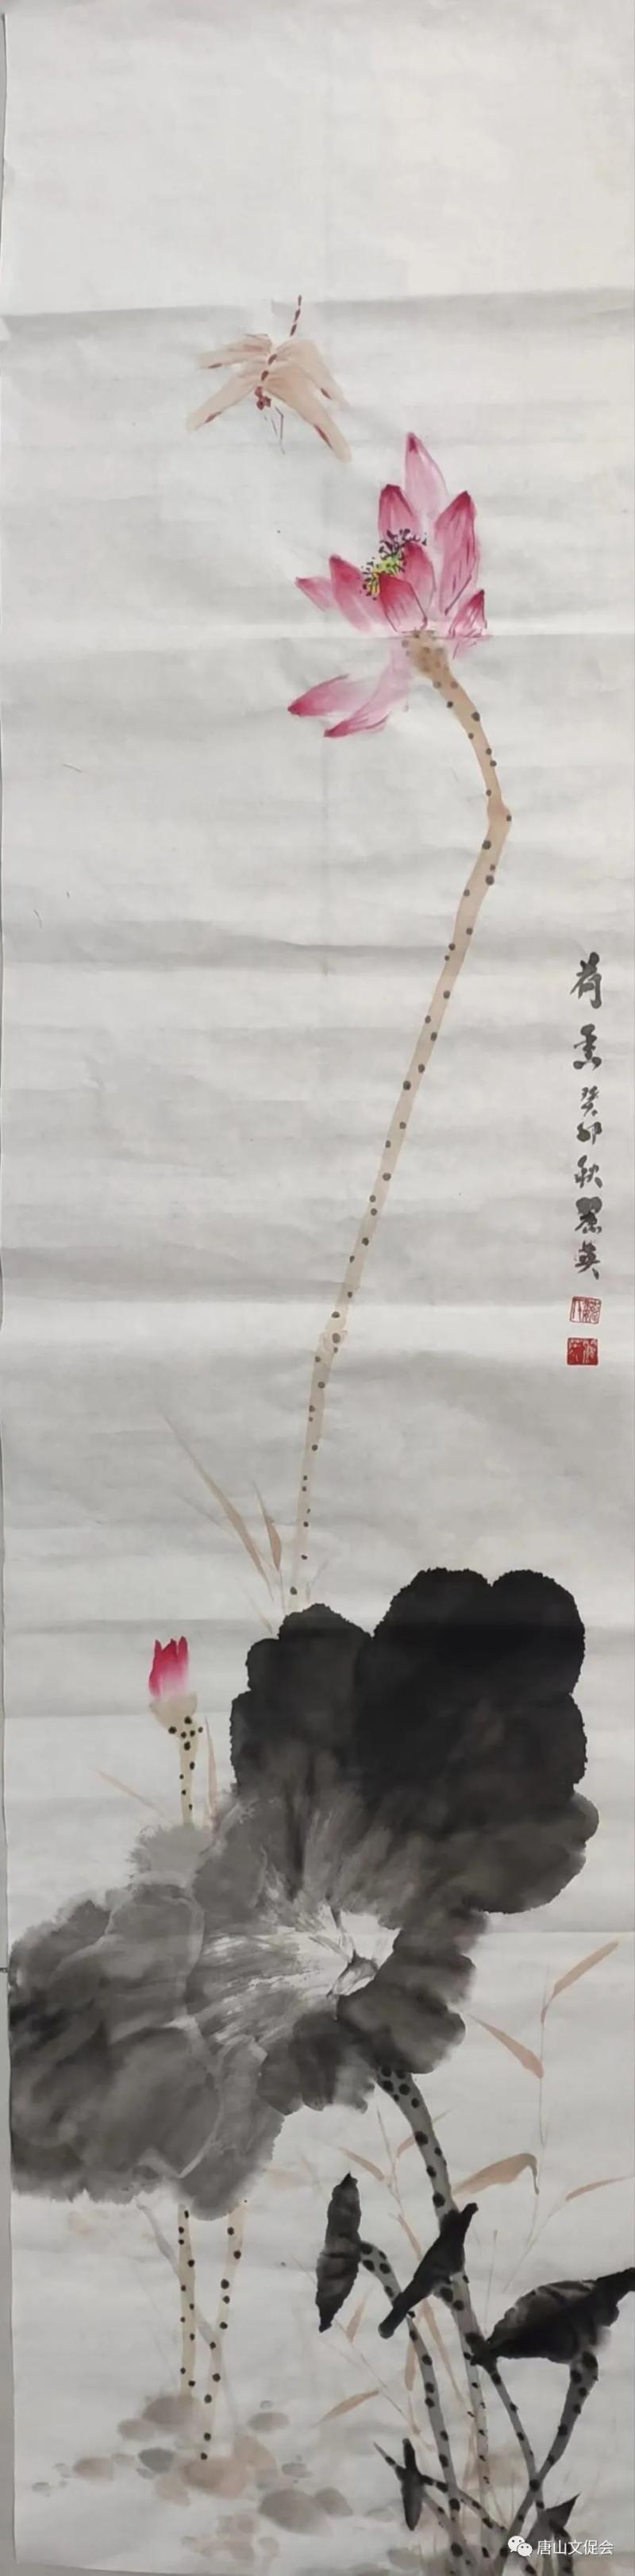 荷香 癸卯秋 丽英
唐山文促会